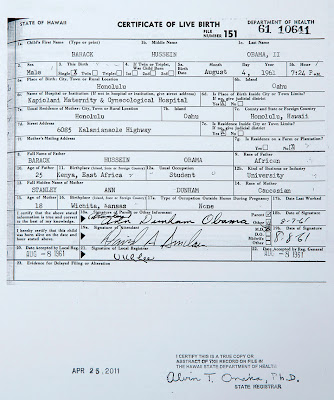 STATE OF HAWAII CERTIFICATE OF LIVE BIRTH DEPARTMENT OF HEALTH
FILE NUMBER 151 61 10641
1a. Child's First Name (Type or print) 1b. Middle Name 1c. Last Name
BARACK HUSSEIN OBAMA, II
2. Sex 3. This Birth 4. If Twin or Triplet, Was Child Born 5a. Birth Date Month Day Year 5b. Hour
Male Single X Twin Triplet August 4, 1961 7:24 P.M.
6a. Place of Birth: City, Town or Rural Location 6b. Island
Honolulu Oahu
6c. Name of Hospital or Institution (If not in hospital or institution, give street address) 6d. Is Place of Birth Inside City or Town Limits? If no, give judicial district
Kapiolani Maternity & Gynecological Hospital
7a. Usual Residence of Mother: City, Town or Rural Location 7b. Island 7c. County and State or Foreign Country
Honolulu Oahu Honolulu, Hawaii
7d. Street Address 7e. Is Residence Inside City or Town Limits? If no, give judicial district
6085 Kalanianaole Highway
7f. Mother's Mailing Address 7g. Is Residence on a Farm or Plantation?
8. Full Name of Father 9. Race of Father
BARACK HUSSEIN OBAMA African
10. Age of Father 11. Birthplace (Island, State or Foreign Country) 12a. Usual Occupation 12b. Kind of Business or Industry
25 Kenya, East Africa Student University
13. Full Maiden Name of Mother 14. Race of Mother
STANLEY ANN DUNHAM Caucasian
15. Age of Mother 16. Birthplace (Island, State or Foreign Country) 17a. Type of Occupation Outside Home During Pregnancy 17b. Date Last Worked
18 Wichita, Kansas None
I certify that the above stated information is true and correct to the best of my knowledge. 18a. Signature of Parent or Other Informant Parent Other 18b. Date of Signature
Dunham Obama 8-7-61
I hereby certify that this child was born alive on the date and hour stated above. 19a. Signature of Attendant M.D. D.O. Midwife Other 19b. Date of Signature
David A Sinclair 8-8-61
20. Date Accepted by Local Reg. 21. Signature of Local Registrar 22. Date Accepted by Reg. General
AUG -8 1961 AUG -8 1961
23. Evidence for Delayed Filing or Alteration
APR 25 2011
I CERTIFY THIS IS A TRUE COPY OR
ABSTRACT OF THE RECORD ON FILE IN
THE HAWAII STATE DEPARTMENT OF HEALTH
Alvin T. Onaka, Ph.D.
STATE REGISTRAR